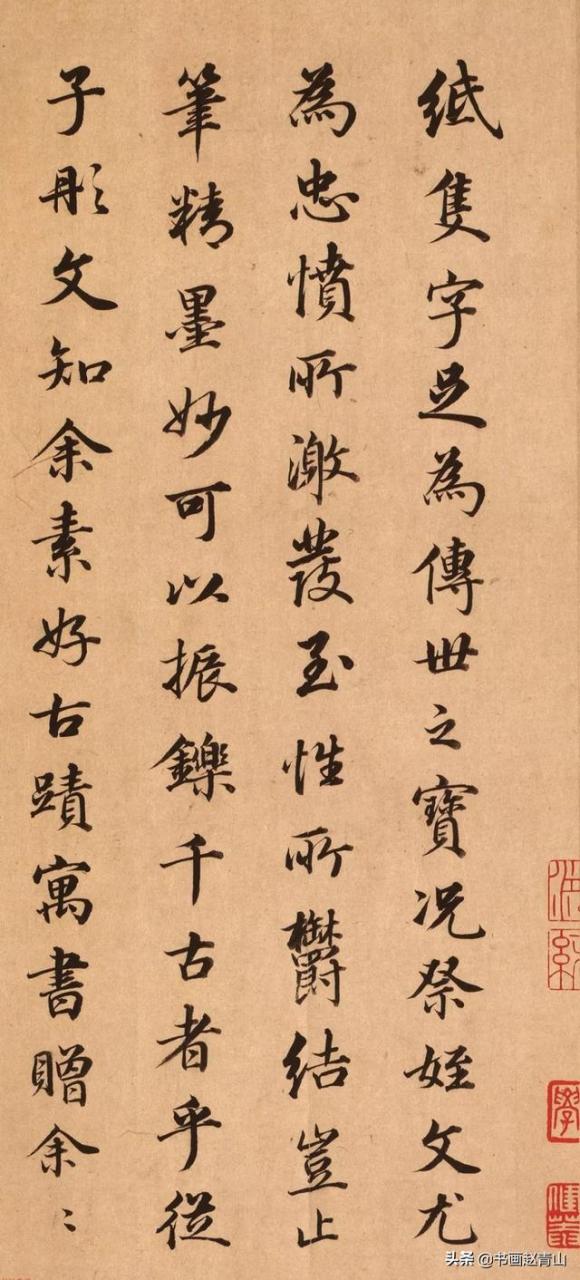 紙隻字足為傳世之寶況祭姪文尤
為忠憤所激發至性所鬱結豈止
筆精墨妙可以振鑠千古者乎從
子彤文知余素好古蹟寓書贈余〻
头条 @书画赵青山